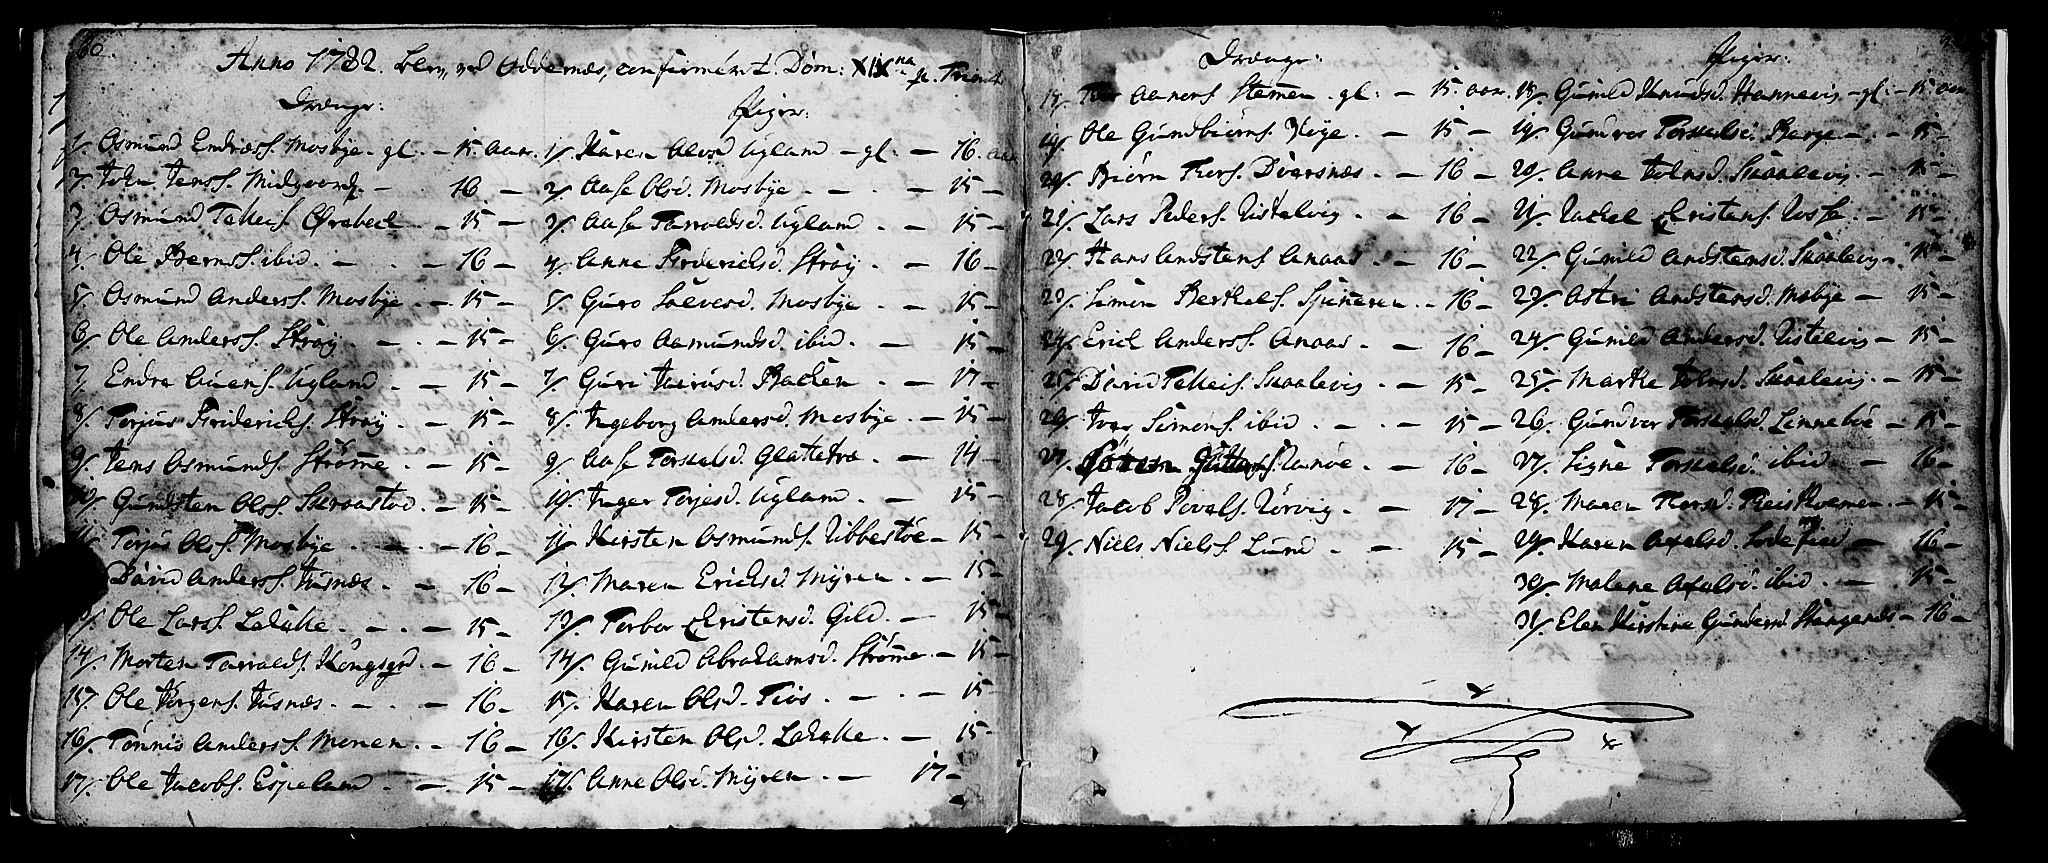 60.
Anno 1782. blev, ved Oddernæs, confirmeret. Dom: XIX na p. Trinit.
Drænge:
1/. Osmund Endress. Mosbye. gl. - 15. aar.
2/. John Jenss. Midgaard. - 16 -
3/. Osmund Tellefs. Ørebeck - 15 -
4/. Ole Berns S. ibid. - - 16 -
5/. Osmund Anderss. Mosbye. - 15 -
6/. Ole Anderss. Stray - - 15 -
7/. Endre Auens. Ugland. - 15 -
8/. Torjus Friderichs. Stray - 15 -
9/. Jens Osmunds. Strømme. - 15 -
10/. Gundsten Olss. Skraastad. - 15 -
11/. Torjus Olss. Mosbye. - - 16 -
David Anderss. Justnæs. - 16 -
13/. Ole Larss. Lahelle. - - 15 -
14/. Morten Tarralds. Kongsgrd. - 16 -
15/. Ole Jørgens. Justnæs. - - 16 -
16/. Tønnis Anderss. Monen. - 16 -
17/. Ole Jacobs. Espeland - 15 -
Piger:
1/. Karen Alvsd. Ugland - gl. - 16. aar
2/. Aase Olsd. Mosbye. - - 15 -
3/. Aase Tarroldsd. Ugland. - 15 -
4/. Anne Friderichsd. Stray. - 16 -
5/. Guro Salvesd. Mosbye - 15 -
6/. Guro Aamundsd. ibid. - 15 -
7/. Guri Jairusd. Backen - 17 -
8/. Ingeborg Andersd. Mosbye. - 15 -
9/. Aase Torkelsd. Glattetræ. - 14 -
10/. Inger Torjesd. Ugland. - 15 -
11/. Kirsten Osmunds. Ribbestøe - 15 -
12/. Maren Erichsd. Myren. - 15 -
13/. Torbor Christensd. Gild. - 15 -
14/. Gunild Abrahamsd. Strømme. - 15 -
15/. Karen Olsd. Tios. - - 15 -
16/. Kirsten Olsd. Lahelle. - 15 -
17/. Anne Olsd. Myren. - 17 -
Drænge:
18/. Aanens. Stemmen. gl. - 15. aar.
19/. Ole Gundbiørns. Kige. - 15 -
20/. Biørn Thors. Dversnæs. - 16 -
21/. Lars Peders. Ustelvig. - 16 -
22/. Hans Andstens. Anaas. - 16 -
23/. Simon Berthels. - 16 -
24/. Erich Anderss. Anaas - 16 -
25/. David Tellefs. Skaalevig. - 15 -
26/. Iver Simons. ibid. - - 15 -
27. - 16 -
28/. Jacob Povels. Rørvig. - 17 -
29/. Niels Nielss. Lund. - 15 -
Piger:
18/. Gunild Knudsd. Hannevig - gl. - 15 aar.
19/. Gundvor Torkelsd. Berge - 15 -
20/. Anne Johnsd. Skaalevig. - 15 -
21/. Rachel Christens. Rosse. - 15 -
22/. Gunild Andstensd. Skaalevig. 15 -
23/. Astri Andstensd. Mebye - 15 -
24/. Gunild Andersd. Ustelvig - 15 -
25/. Marthe Johnsd. Skaalevig. - 15 -
26. Gundvor Torkelsd. Linnebøe - 15 -
27/. Signe Torkelsd. ibid - 16 -
28/. Maren Thorsd. - 15 -
29/. Karen Axelsd. - 16 -
30/. Malene Axelsd. ibid. - 15 -
31/. Elen Kirstine Gundersd. Stangenæs - 16 -